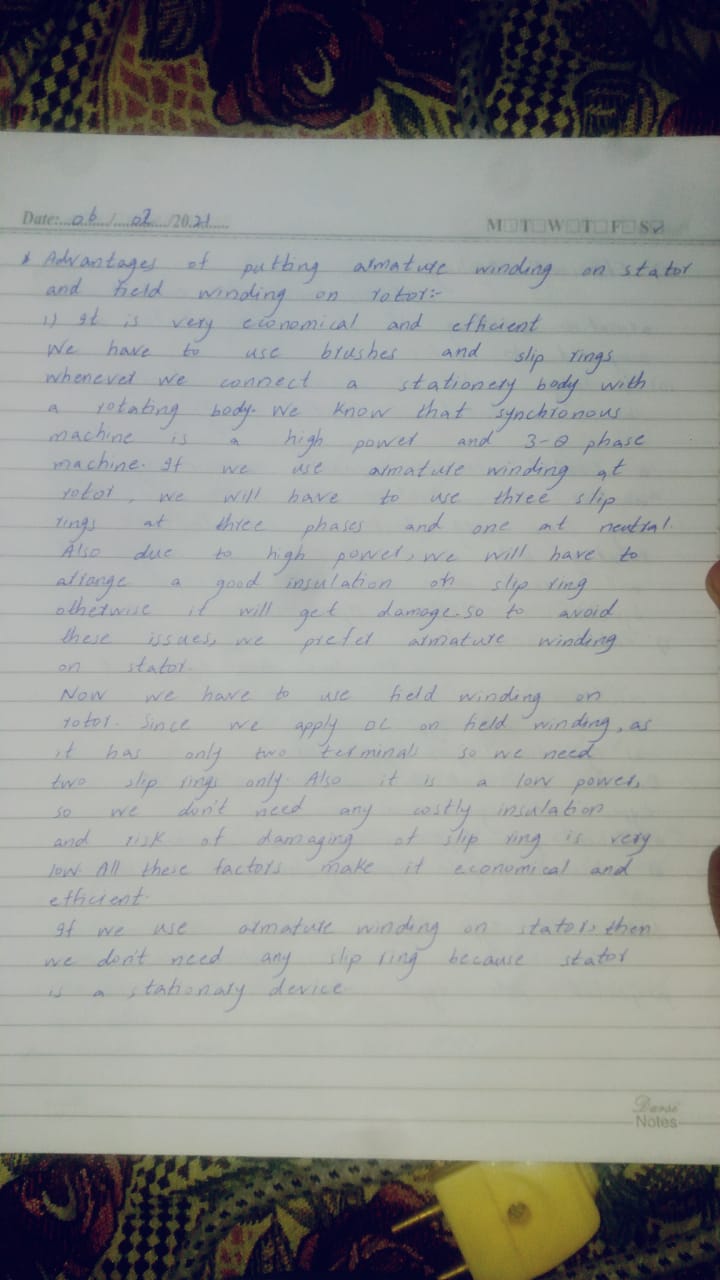 Date: 06 / 02 /2021
M T W T F S
* Advantages of putting armature winding on stator
and field winding on rotor:-
1) It is very economical and efficient
We have to use brushes and slip rings
whenever we connect a stationery body with
a rotating body. We know that synchronous
machine is a high power and 3-Ø phase
machine. If we use armature winding at
rotor, we will have to use three slip
rings at three phases and one at neutral.
Also due to high power, we will have to
arrange a good insulation on slip ring
otherwise it will get damage. so to avoid
these issues, we prefer armature winding
on stator.
Now we have to use field winding on
rotor. Since we apply DC on field winding, as
it has only two terminals so we need
two slip rings only. Also it is a low power,
so we don't need any costly insulation
and risk of damaging of slip ring is very
low. All these factors make it economical and
efficient.
If we use armature winding on stator, then
we don't need any slip ring because stator
is a stationary device.
Notes